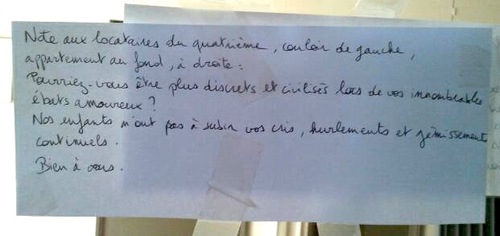 Note aux locataires du quatrième, couloir de gauche,
appartement au fond, à droite :
Pourriez-vous être plus discrets et civilisés lors de vos innombrables
ébats amoureux ?
Nos enfants n'ont pas à subir vos cris, hurlements et gémissements
continuels.
Bien à vous.